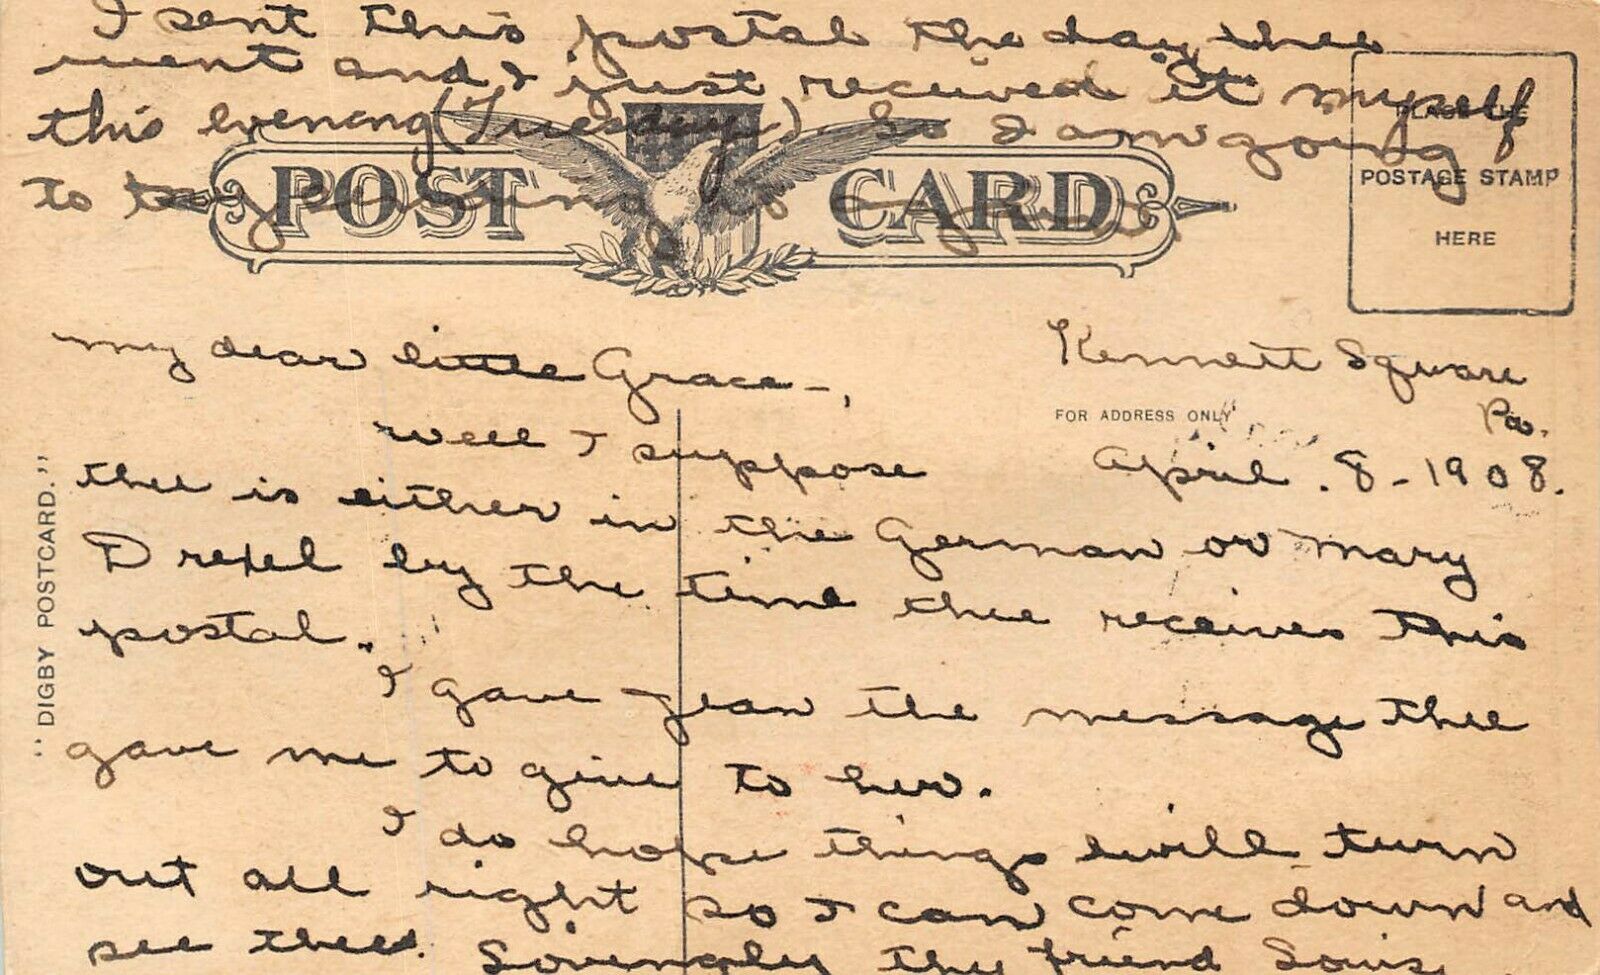 I sent this postal the day thee
went and I just received it myself
this evening (Tuesday). So I am going
to try sending it again.
POST CARD
PLACE THE
POSTAGE STAMP
HERE
My dear little Grace-,
Kennett Square
Pa.
FOR ADDRESS ONLY
April. 8-1908.
well I suppose
thee is either in the German or Mary
Drexel by the time thee receives this
postal.
I gave Jean the message thee
gave me to give to her.
I do hope things will turn
out all right so I can come down and
see thee. Lovingly thy friend Lois
"DIGBY POSTCARD."